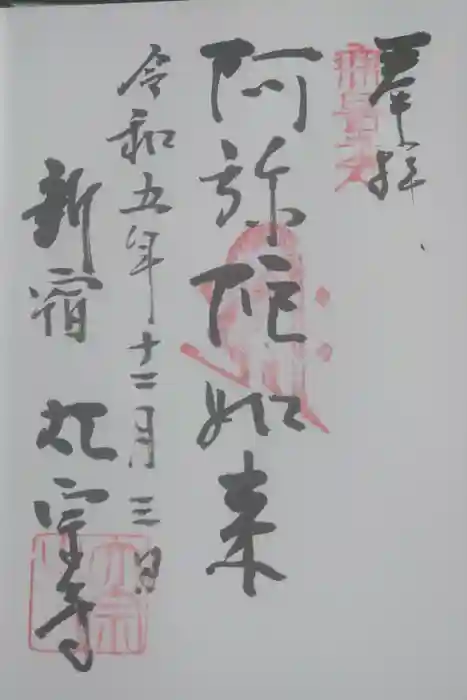 奉拝
阿弥陀如来
令和五年十二月三日
新宿